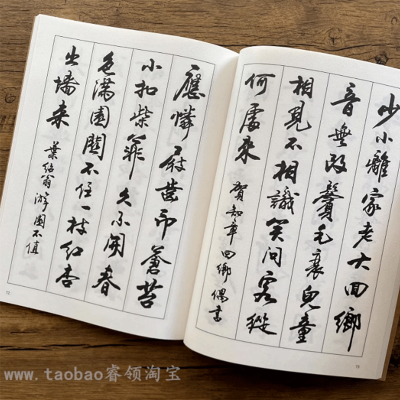 少小離家老大回鄉
音無改鬢毛衰兒童
相見不相識笑問客從
何處來
賀知章回鄉偶書
應憐屐齒印蒼苔
小扣柴扉久不開春
色滿園關不住一枝紅杏
出墻來
葉紹翁游園不值
www.taobao睿领淘宝